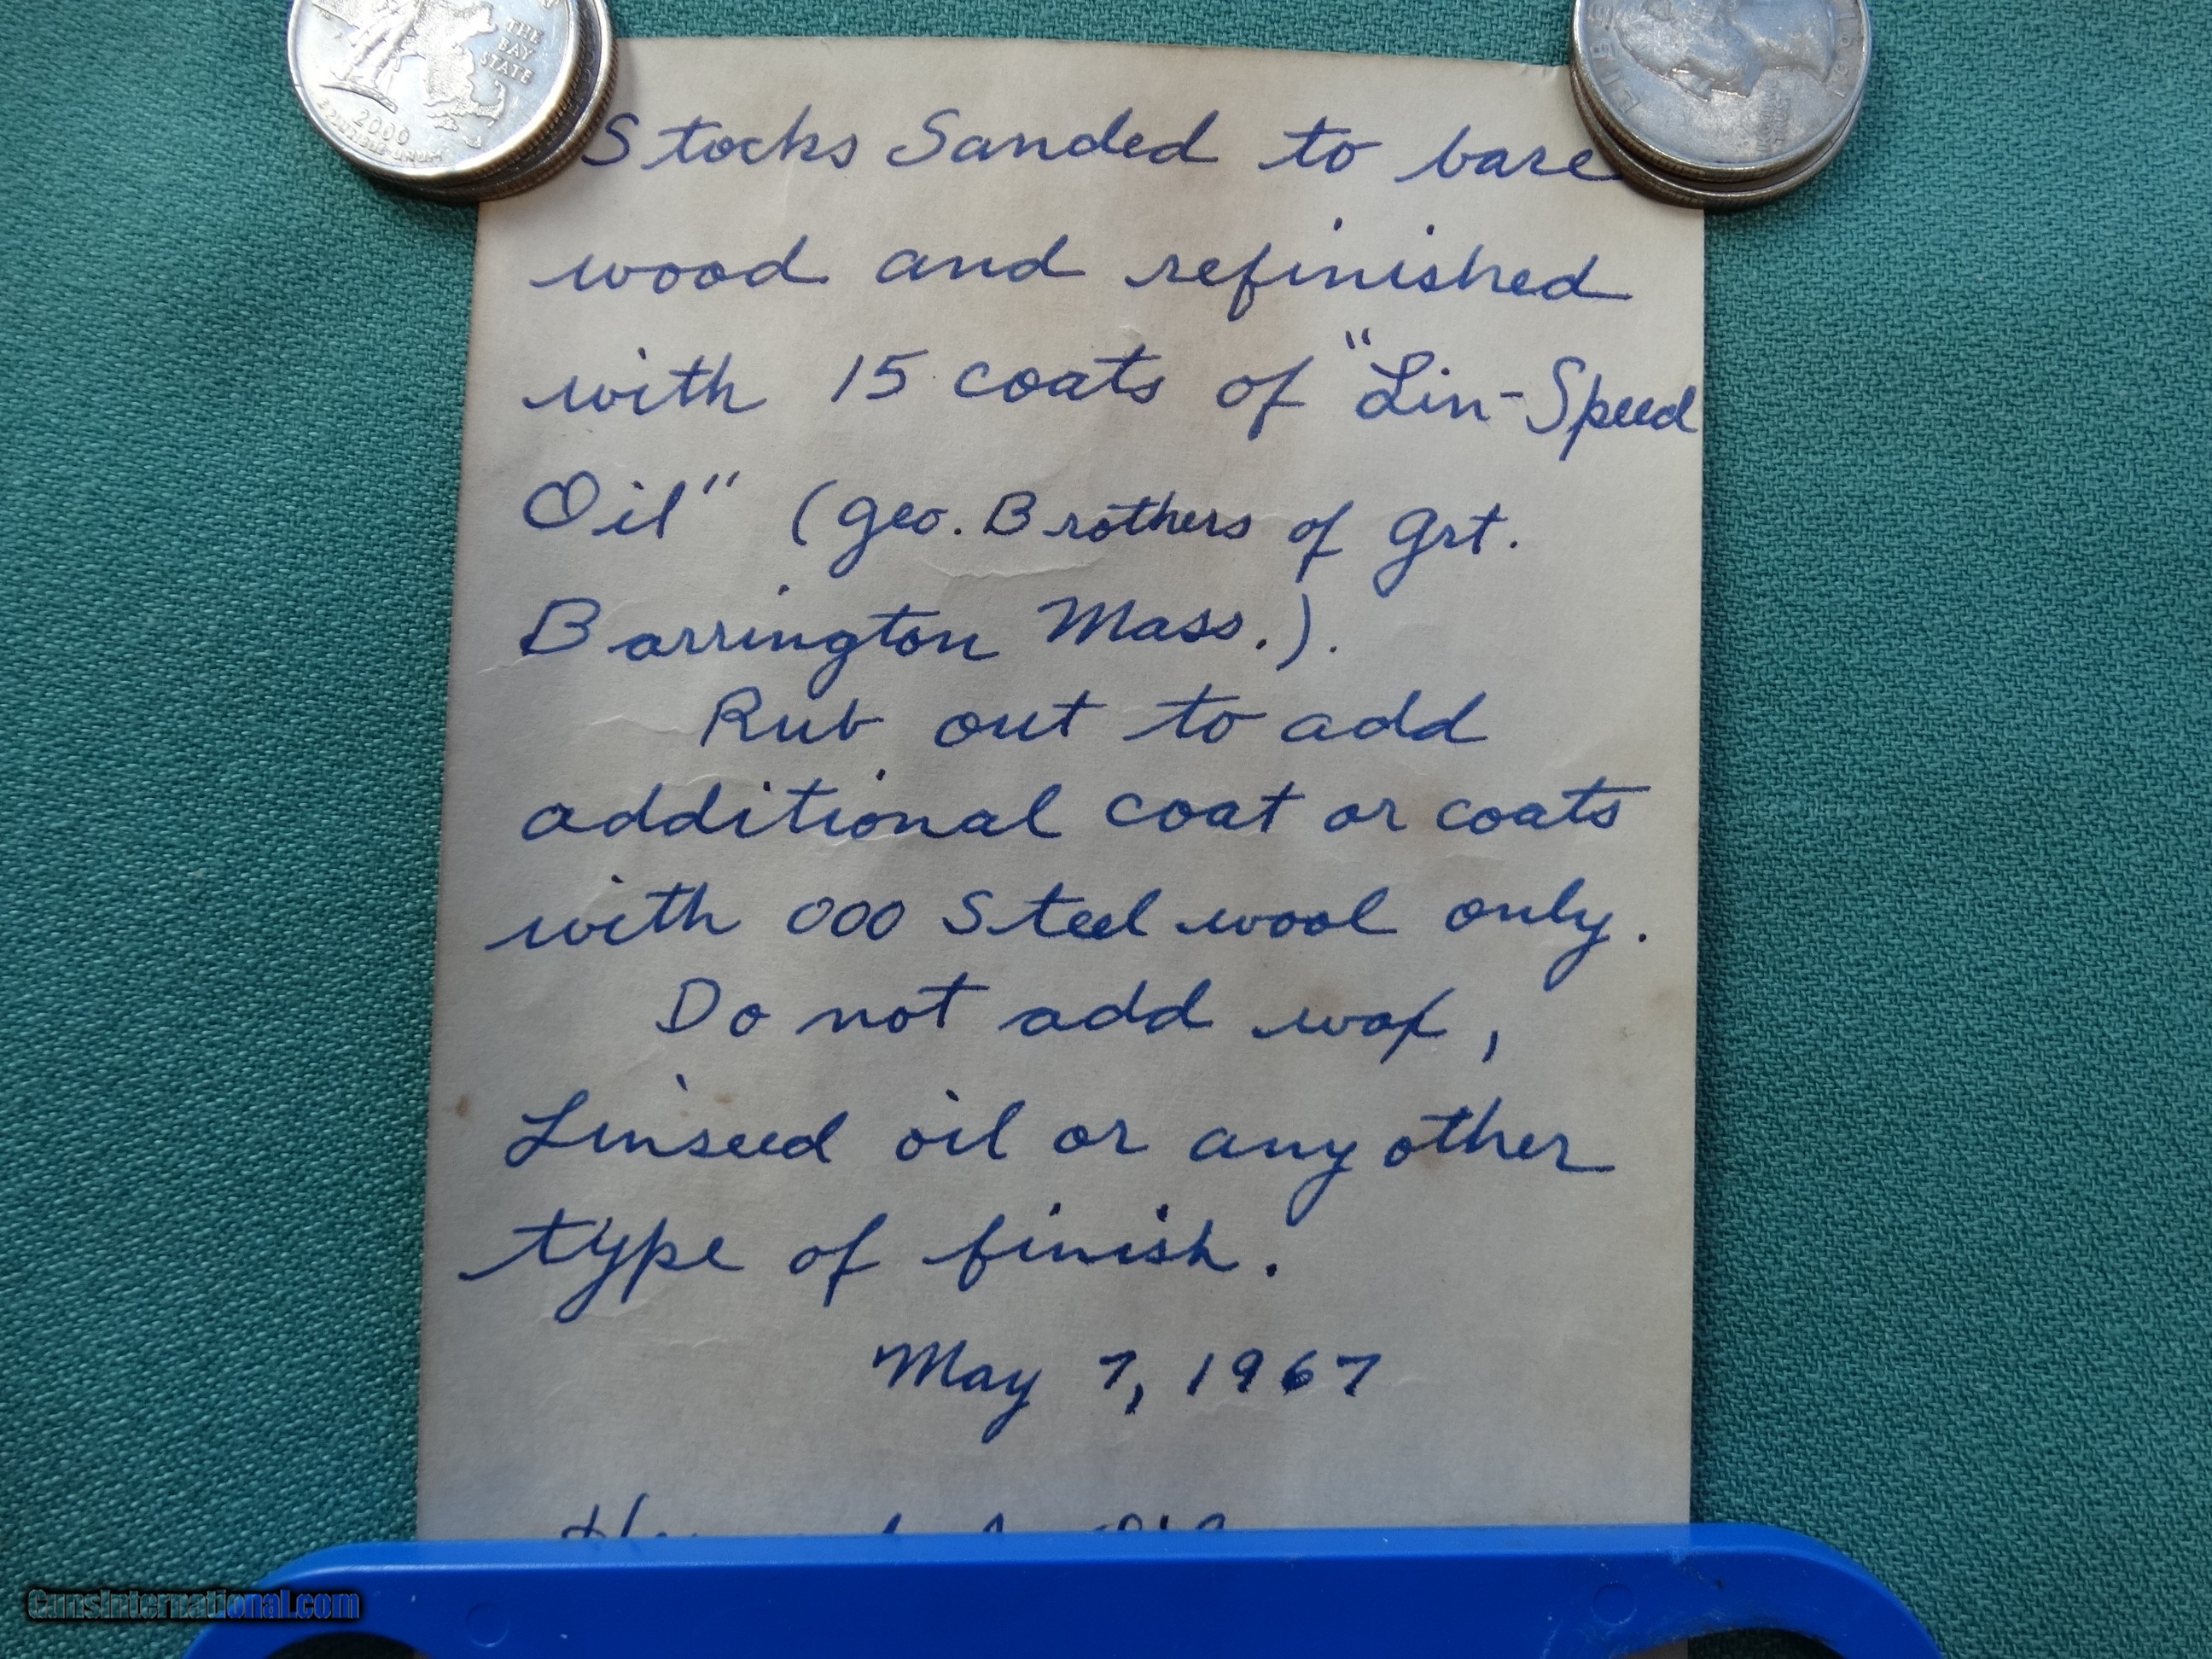 THE
BAY
STATE
2000
Stocks Sanded to bare
wood and refinished
with 15 coats of "Lin-Speed
Oil" (Geo. Brothers of Grt.
Barrington Mass.).
Rub out to add
additional coat or coats
with 000 Steel wool only.
Do not add wax,
Linseed oil or any other
type of finish.
May 7, 1967
GunsInternational.com